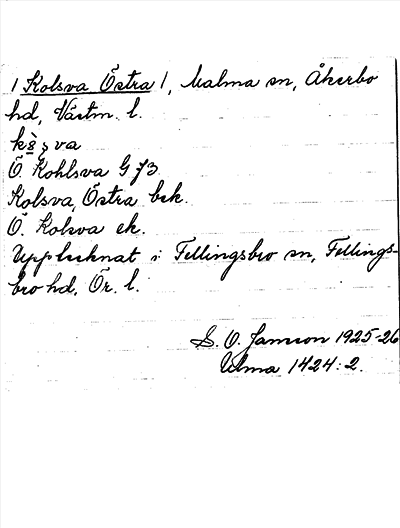 / Kolsva Östra /, Malma sn, Åkerbo
hd, Västm. l.
Ö. Kohlsva G 73
Kolsva, Östra bek.
Ö. Kolsva ek.
Upptecknat i Fellingsbro sn, Fellings-
bro hd, Ör. l.
S. O. Jansson 1925-26
Ulma 1424:2.